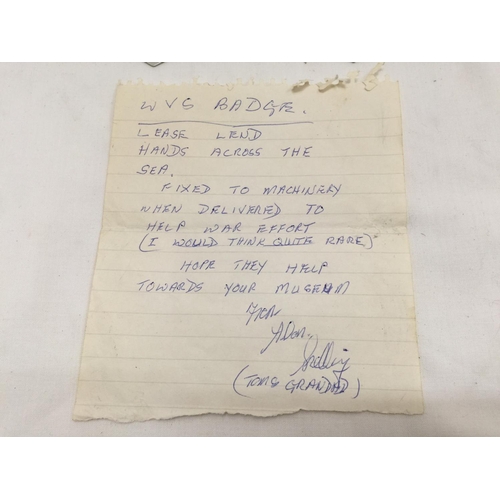 WVS BADGE.
LEASE LEND
HANDS ACROSS THE
SEA.
FIXED TO MACHINERY
WHEN DELIVERED TO
HELP WAR EFFORT
(I WOULD THINK QUITE RARE)
HOPE THEY HELP
TOWARDS YOUR MUSEUM
From
(TOMS GRANDAD)